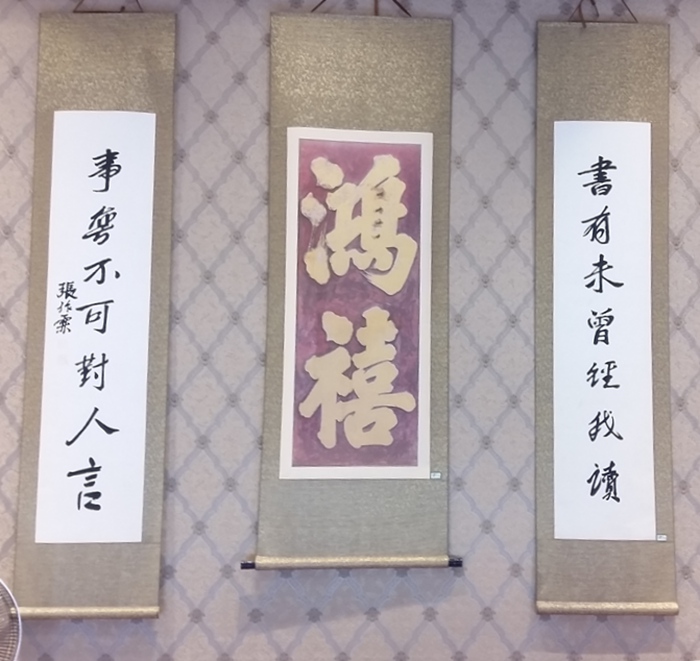 書有未曾經我讀
鴻禧
事無不可對人言
張作霖